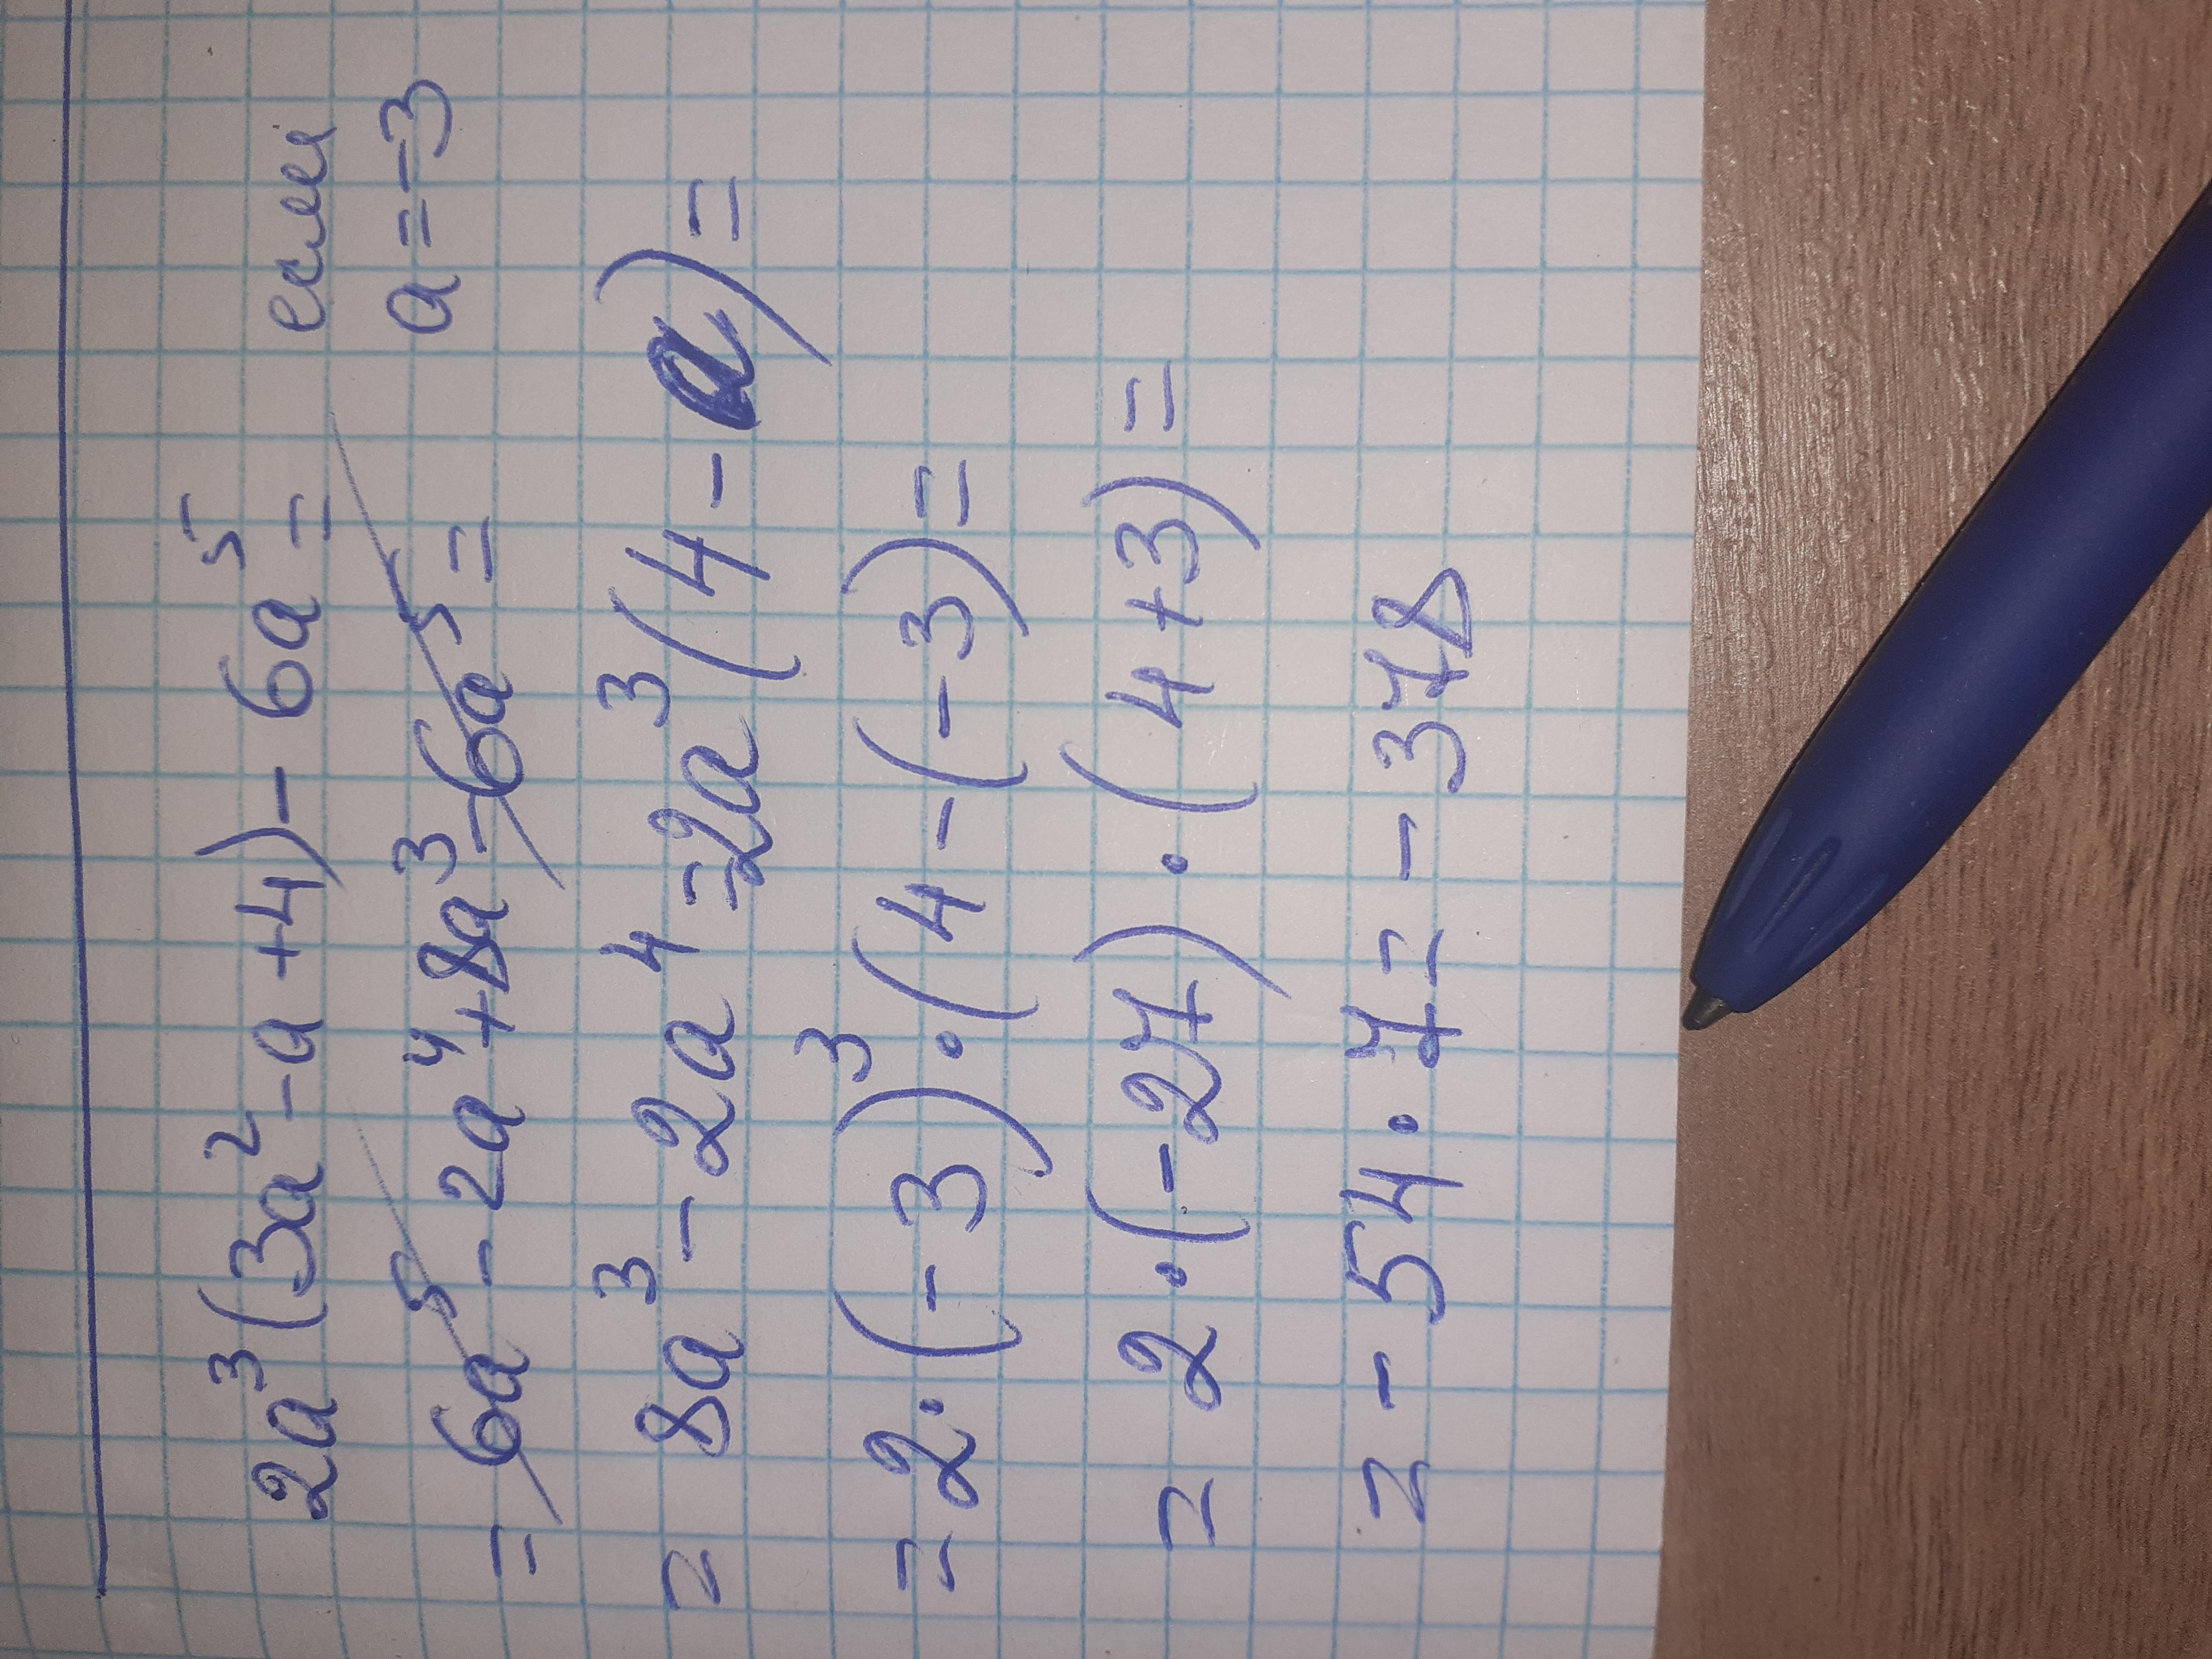 2a³(3a²-a+4)-6a⁵= если
a=-3
=6a⁵-2a⁴+8a³-6a⁵=
=8a³-2a⁴=2a³(4-a)=
=2·(-3)³·(4-(-3)=
=2·(-27)·(4+3)=
=-54·7=-378